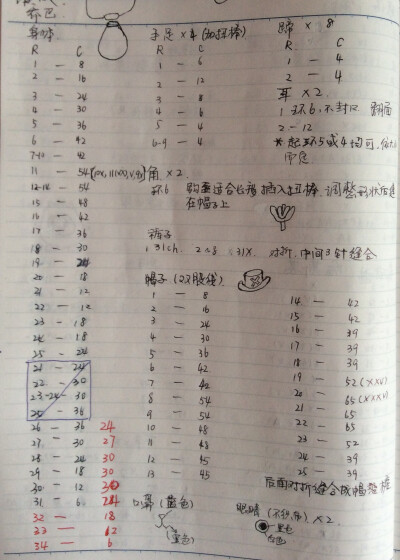 乔巴
R C
1 - 8
2 - 16
3 - 24
4 - 30
5 - 36
6 - 42
7-10 - 42
11 - 54
12-14 - 54
15 - 48
16 - 42
17 - 36
18 - 30
19 - 24
20 - 18
21 - 12
22 - 12
23 - 18
24 - 18
25 - 24
21 - 24
22 - 30
23-24 - 30
25 - 36
26 - 36 24
27 - 30 27
28 - 24 30
29 - 18 30
30 - 12 30
31 - 6 24
32 - 18
33 - 12
34 - 6
手足×4(加扭棒)
R C
1 - 6
2 - 12
3 - 8
4 - 6
5 - 4
6-9 - 4
蹄×8
R C
1 - 4
2 - 4
耳×2
1 环6,不封口 翻面
2 - 12
角×2
环6 钩至适合长度 插入扭棒,调整形状后缝
在帽子上
裤子
对折,中间3针缝合
帽子(2股线)
1 - 8
2 - 16
3 - 24
4 - 30
5 - 36
6 - 42
7 - 42
8 - 54
9 - 54
10 - 48
11 - 48
12 - 45
13 - 45
14 - 42
15 - 42
16 - 39
17 - 39
18 - 39
19 - 52(XXV)
20 - 65(XXXV)
21 - 65
22 - 65
23 - 52
24 - 39
25 - 39
后面对折缝合成帽檐
口鼻(蓝色)
眼睛 ×2
黑色
白色